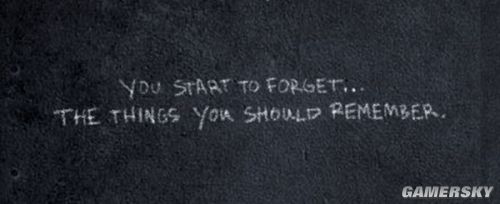 YOU START TO FORGET...
THE THINGS YOU SHOULD REMEMBER.
GAMERSKY